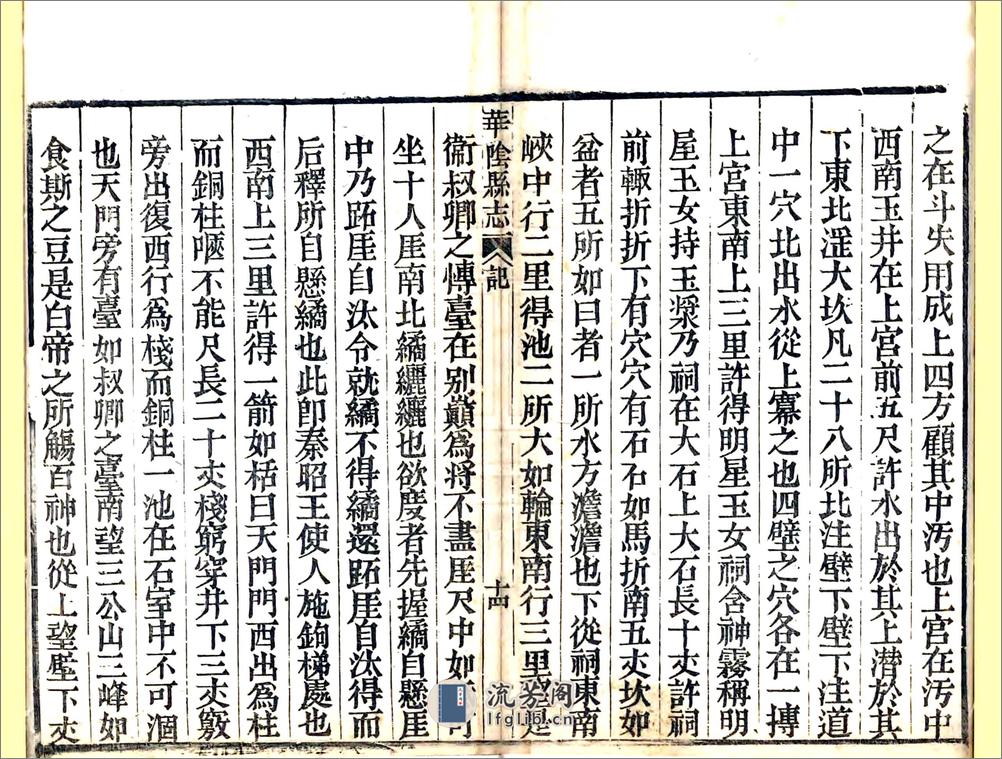 之在斗失用成上四方顧其中汚也上宮在汚中
西南玉井在上宮前五尺許水出於其上潜於其
下東北淫大坎凡二十八所北注壁下壁下注道
中一穴北出水從上寡之也四壁之穴各在一摶
上宮東南上三里許得明星玉女祠舍神霧稱明
屋玉女持玉漿乃祠在大石上大石長十丈許祠
前輙折折下有穴穴有石石如馬折南五丈坎如
盆者五所如臼者一所水方澹澹也下從祠東南
峽中行二里得池二所大如輪東南行三里
華陰縣志
記
十四
衞叔卿之愽臺在別巔為將不盡厓尺中如
坐十人厓南北繘纚纚也欲度者先握繘自懸厓
中乃跖厓自汰令就繘不得繘還跖厓自汰得而
后釋所自懸繘也此卽秦昭王使人施鉤梯處也
西南上三里許得一箭如栝曰天門門西出為柱
而銅柱㗇不能尺長二十丈棧窮穿井下三丈竅
旁出復西行為棧而銅柱一池在石室中不可涸
也天門旁有臺如叔卿之臺南望三公山三峰如
食斯之豆是白帝之所觴百神也從上望壁下丈
流芳阁
lfglib.cn